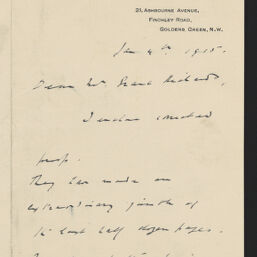 21, ASHBOURNE AVENUE,
FINCHLEY ROAD,
GOLDERS GREEN, N.W.
Jan 4th 1915.
Dear Mr. Grant Richards,
I enclose corrected
proof.
They have made an
extraordinary jumble of
the last half dozen pages.